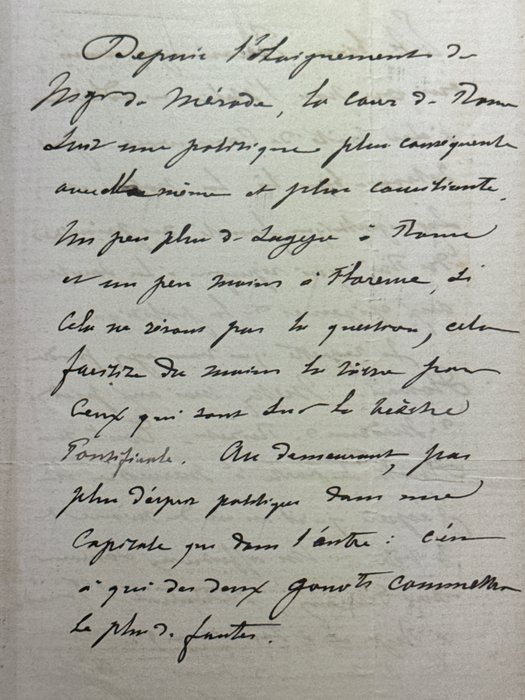 Depuis l'éloignement de
Mgr de Mérode, la cour de Rome
suit une politique plus conséquente
avec elle même et plus conciliante.
Un peu plus de sagesse à Rome
et un peu moins à Florence, si
cela ne résout pas la question, cela
facilite du moins la pour
ceux qui sont sur le théâtre
Pontificale. Au demeurant, pas
plus d'esprit politique dans une
Capitale que dans l'autre : c'est
à qui des deux commettra
le plus de fautes.